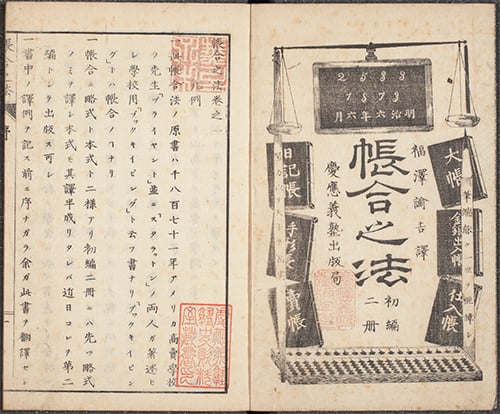 2533
1873
明治六年六月
大帳
金銀出入帳
仕入帳
福澤諭吉譯
帳合之法
初編
二冊
慶應義塾出版局
日記帳
手形帳
賣帳
帳合之法卷之一
凡例
一帳合法ノ原書ハ千八百七十一年アメリカ商賣學校
ノ先生「ブライヤント」並ニ「スタラットン」ノ兩人ガ著述セ
シ學校用「ブックキイピング」ト云フ書ナリ「ブックキイピン
グ」トハ帳合ノヿナリ
一帳合ニ略式ト本式ト二樣アリ初編二冊ニハ先ツ略式
ノミヲ譯シ本式モ其譯半成リタレバ近日コレヲ第二
編トシテ出版ス可シ
一書中ノ譯例ヲ記ス前ニ序ナガラ余ガ此書ヲ翻譯セシ
帳合之法